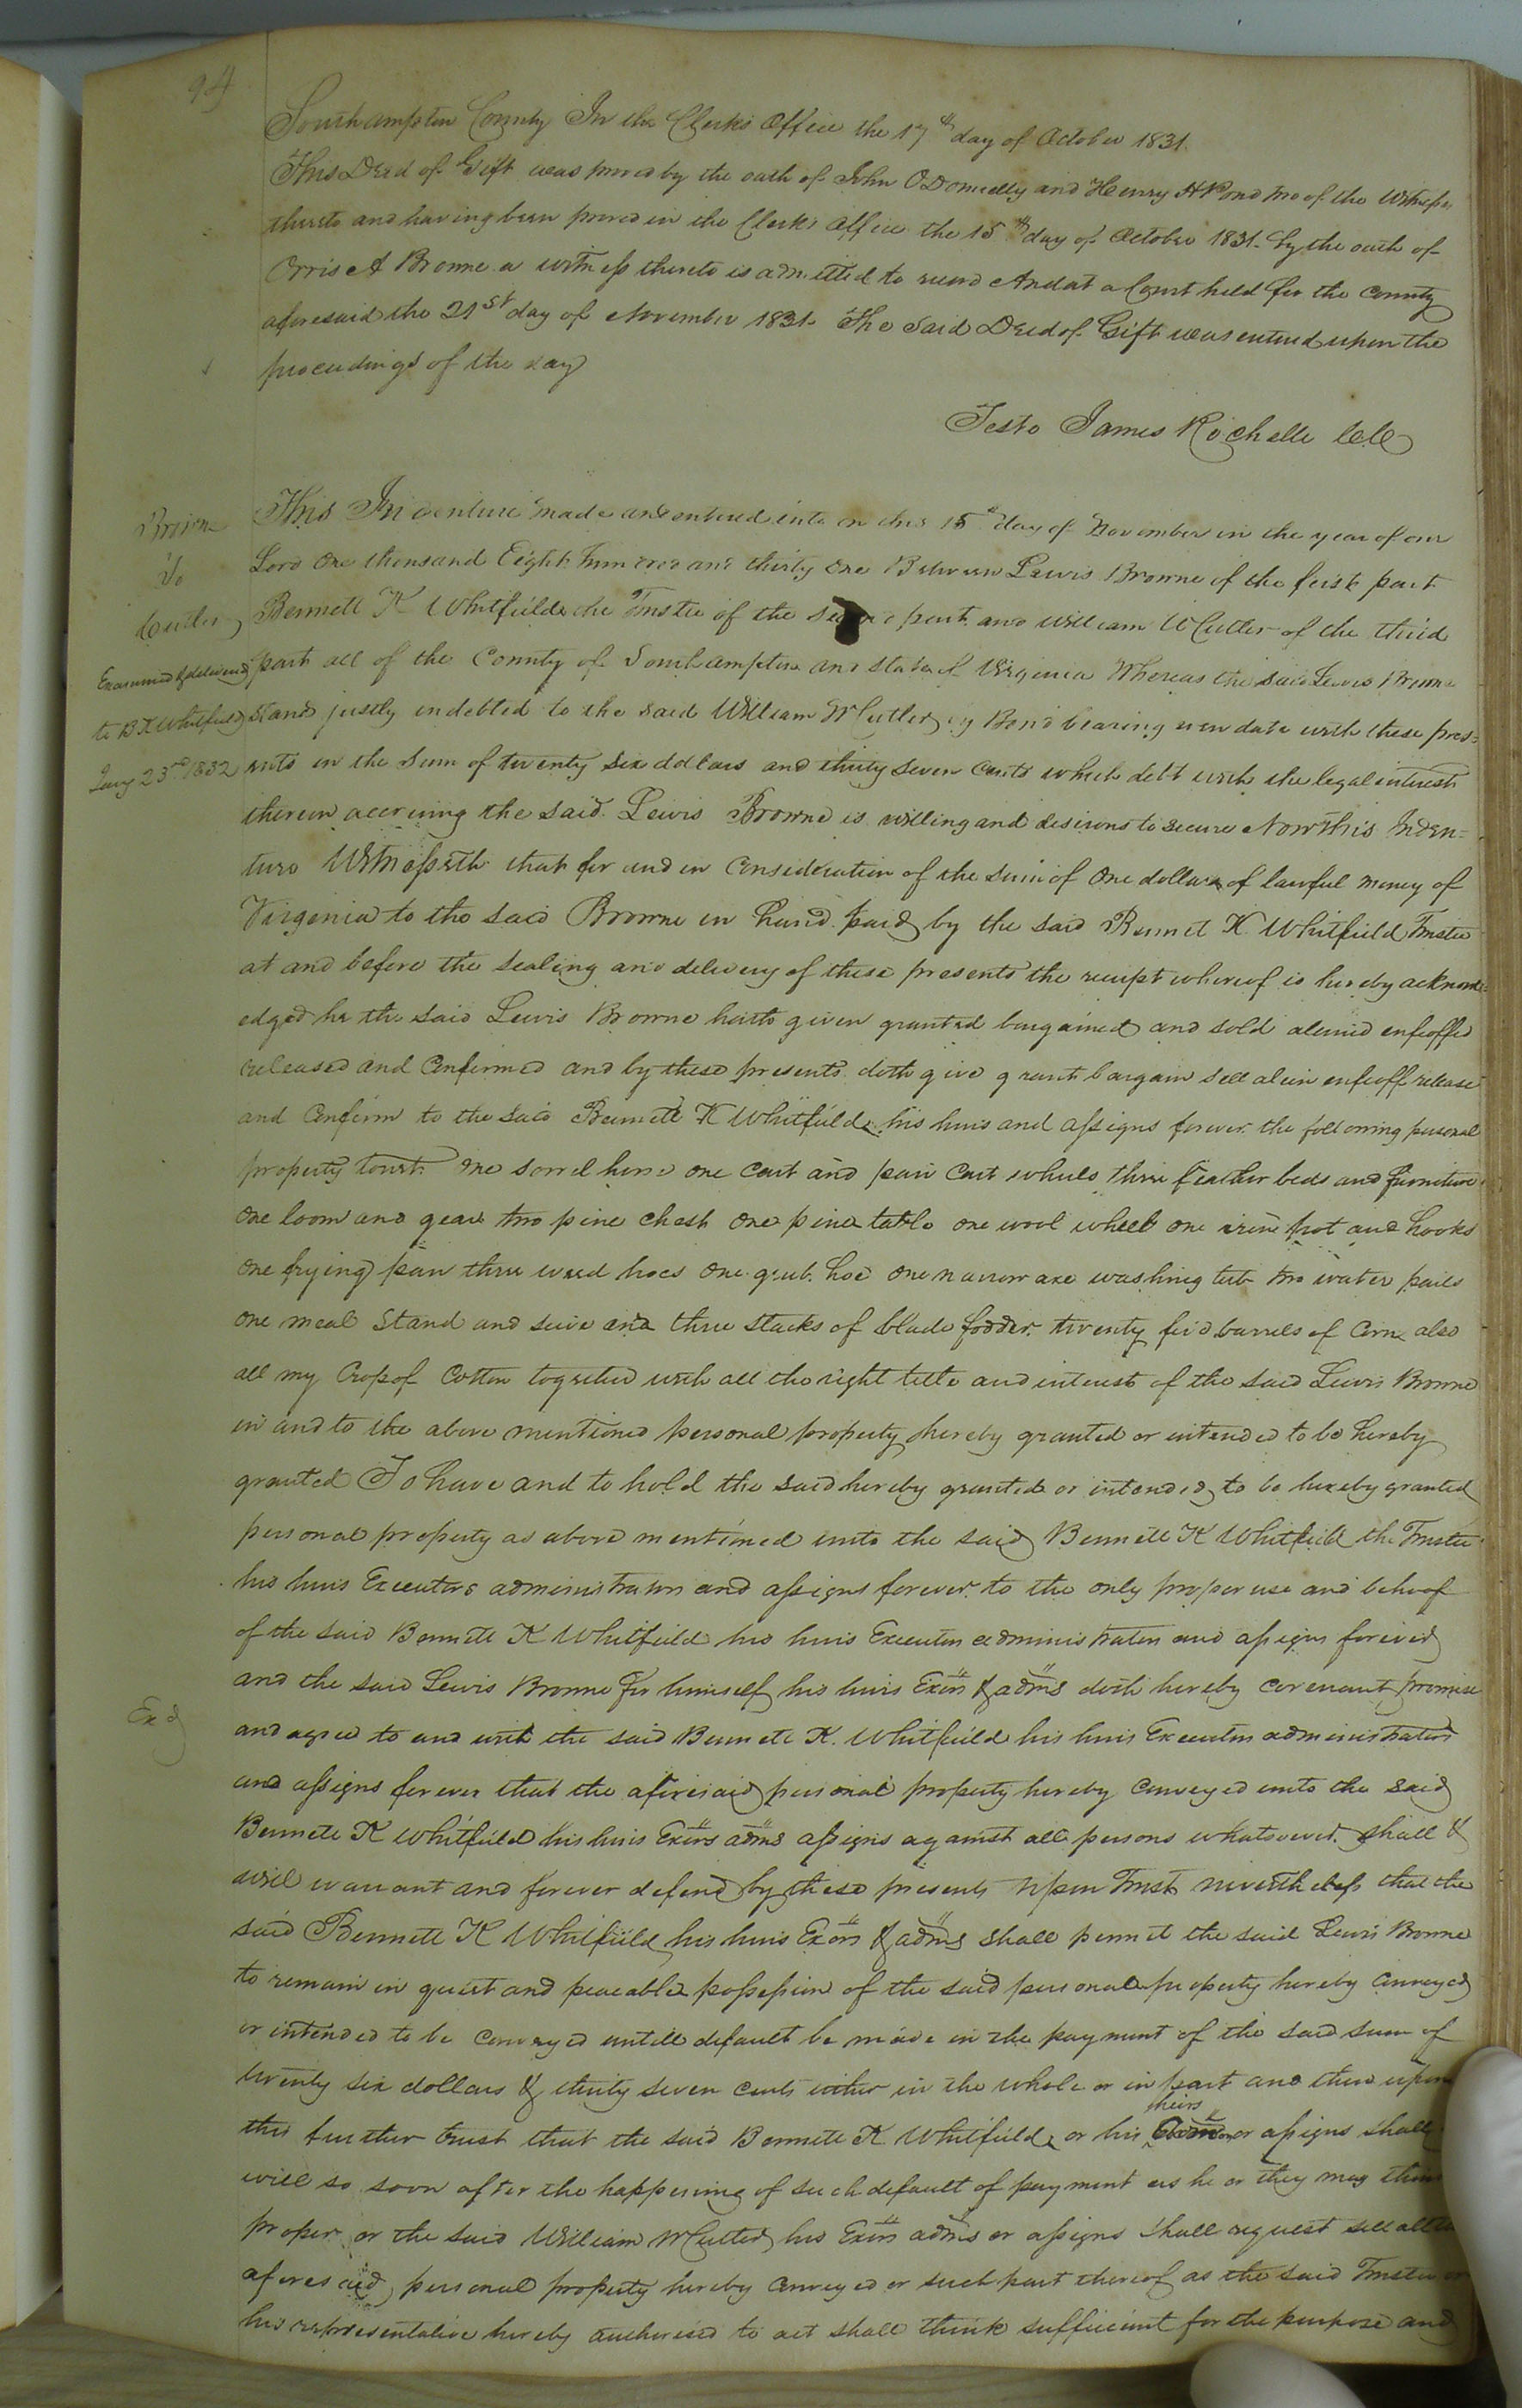 94
Southampton County In the Clerks Office the 17th day of October 1831.
This Deed of Gift was proved by the oath of John O Donnelly and Henry H Pond two of the Witnesses
thereto and having been proved in the Clerks Office the 15th day of October 1831. by the oath of
Orris A Browne a witness thereto is admitted to record And at a Court held for the County
aforesaid the 21st day of November 1831. The said Deed of Gift was entered upon the
proceedings of the day
Teste James Rochelle
Browne
To
Cutler
Examined & delivered
to B K Whitfield
Jany 23rd 1832
This Indenture made and entered into on this 15th day of November in the year of our
Lord One thousand Eight hundred and thirty one Between Lewis Browne of the first part
Bennett K Whitfield the Trustee of the second part and William W Cutler of the third
part all of the County of Southampton and state of Virginia Whereas the said Lewis Browne
stands justly indebted to the said William W Cutler by Bond bearing even date with these pres=
ents in the sum of twenty six dollars and thirty seven cents which debt with the legal interest
thereon accruing the said Lewis Browne is willing and desirous to secure Now this Inden=
ture Witnesseth that for and in Consideration of the sum of One dollar of lawful money of
Virginia to the said Browne in hand paid by the said Bennet K Whitfield Trustee
at and before the sealing and delivery of these presents the receipt whereof is hereby acknowl=
edged he the said Lewis Browne hath given granted bargained and sold aliened enfeoffed
released and Confirmed and by these presents doth give grant bargain sell alein enfeoff release
and Confirm to the said Bennett K Whitfield his heirs and assigns forever the following personal
property towit: One sorrel horse one cart and pair cart wheels three feather beds and furniture
One loom and gear two pine chest One pine table one wool wheel one iron pot and hooks
One frying pan three weed hoes One grub hoe One narrow axe washing tub two water pails
One meal stand and seive and three stacks of blade fodder twenty five barrels of Corn also
all my Crop of Cotton together with all the right title and interest of the said Lewis Browne
in and to the above mentioned personal property hereby granted or intended to be hereby
granted To have and to hold the said hereby granted or intended to be hereby granted
personal property as above mentioned unto the said Bennett K Whitfield the Trustee
his heirs Executors administrators and assigns forever to the only proper use and behoof
of the said Bennett K Whitfield his heirs Executors administrators and assigns forever
and the said Lewis Browne for himself his heirs Exors & adms doth hereby covenant promise
Exd
and agree to and with the said Bennett K. Whitfield his heirs Executors administrators
and assigns forever that the aforesaid personal property hereby Conveyed unto the said
Bennett K Whitfield his heirs Exors adms assigns against all persons whatsoever shall &
will warrant and forever defend by these presents Upon Trust nevertheless that the
said Bennett K Whitfield his heirs Exors & adms shall permit the said Lewis Browne
to remain in quiet and peaceable possession of the said personal property hereby Conveyed
or intended to be Conveyed untill default be made in the payment of the said sum of
twenty six dollars & thirty seven cents either in the whole or in part and then upon
this further trust that the said Bennett K Whitfield or his heirs or assigns shall
will so soon after the happening of such default of payment as he or they may think
proper or the said William W Cutler his Exors adms or assigns shall request sell all the
aforesaid personal property hereby Conveyed or such part thereof as the said Trustee or
his representative hereby authorised to act shall think sufficient for the purpose and